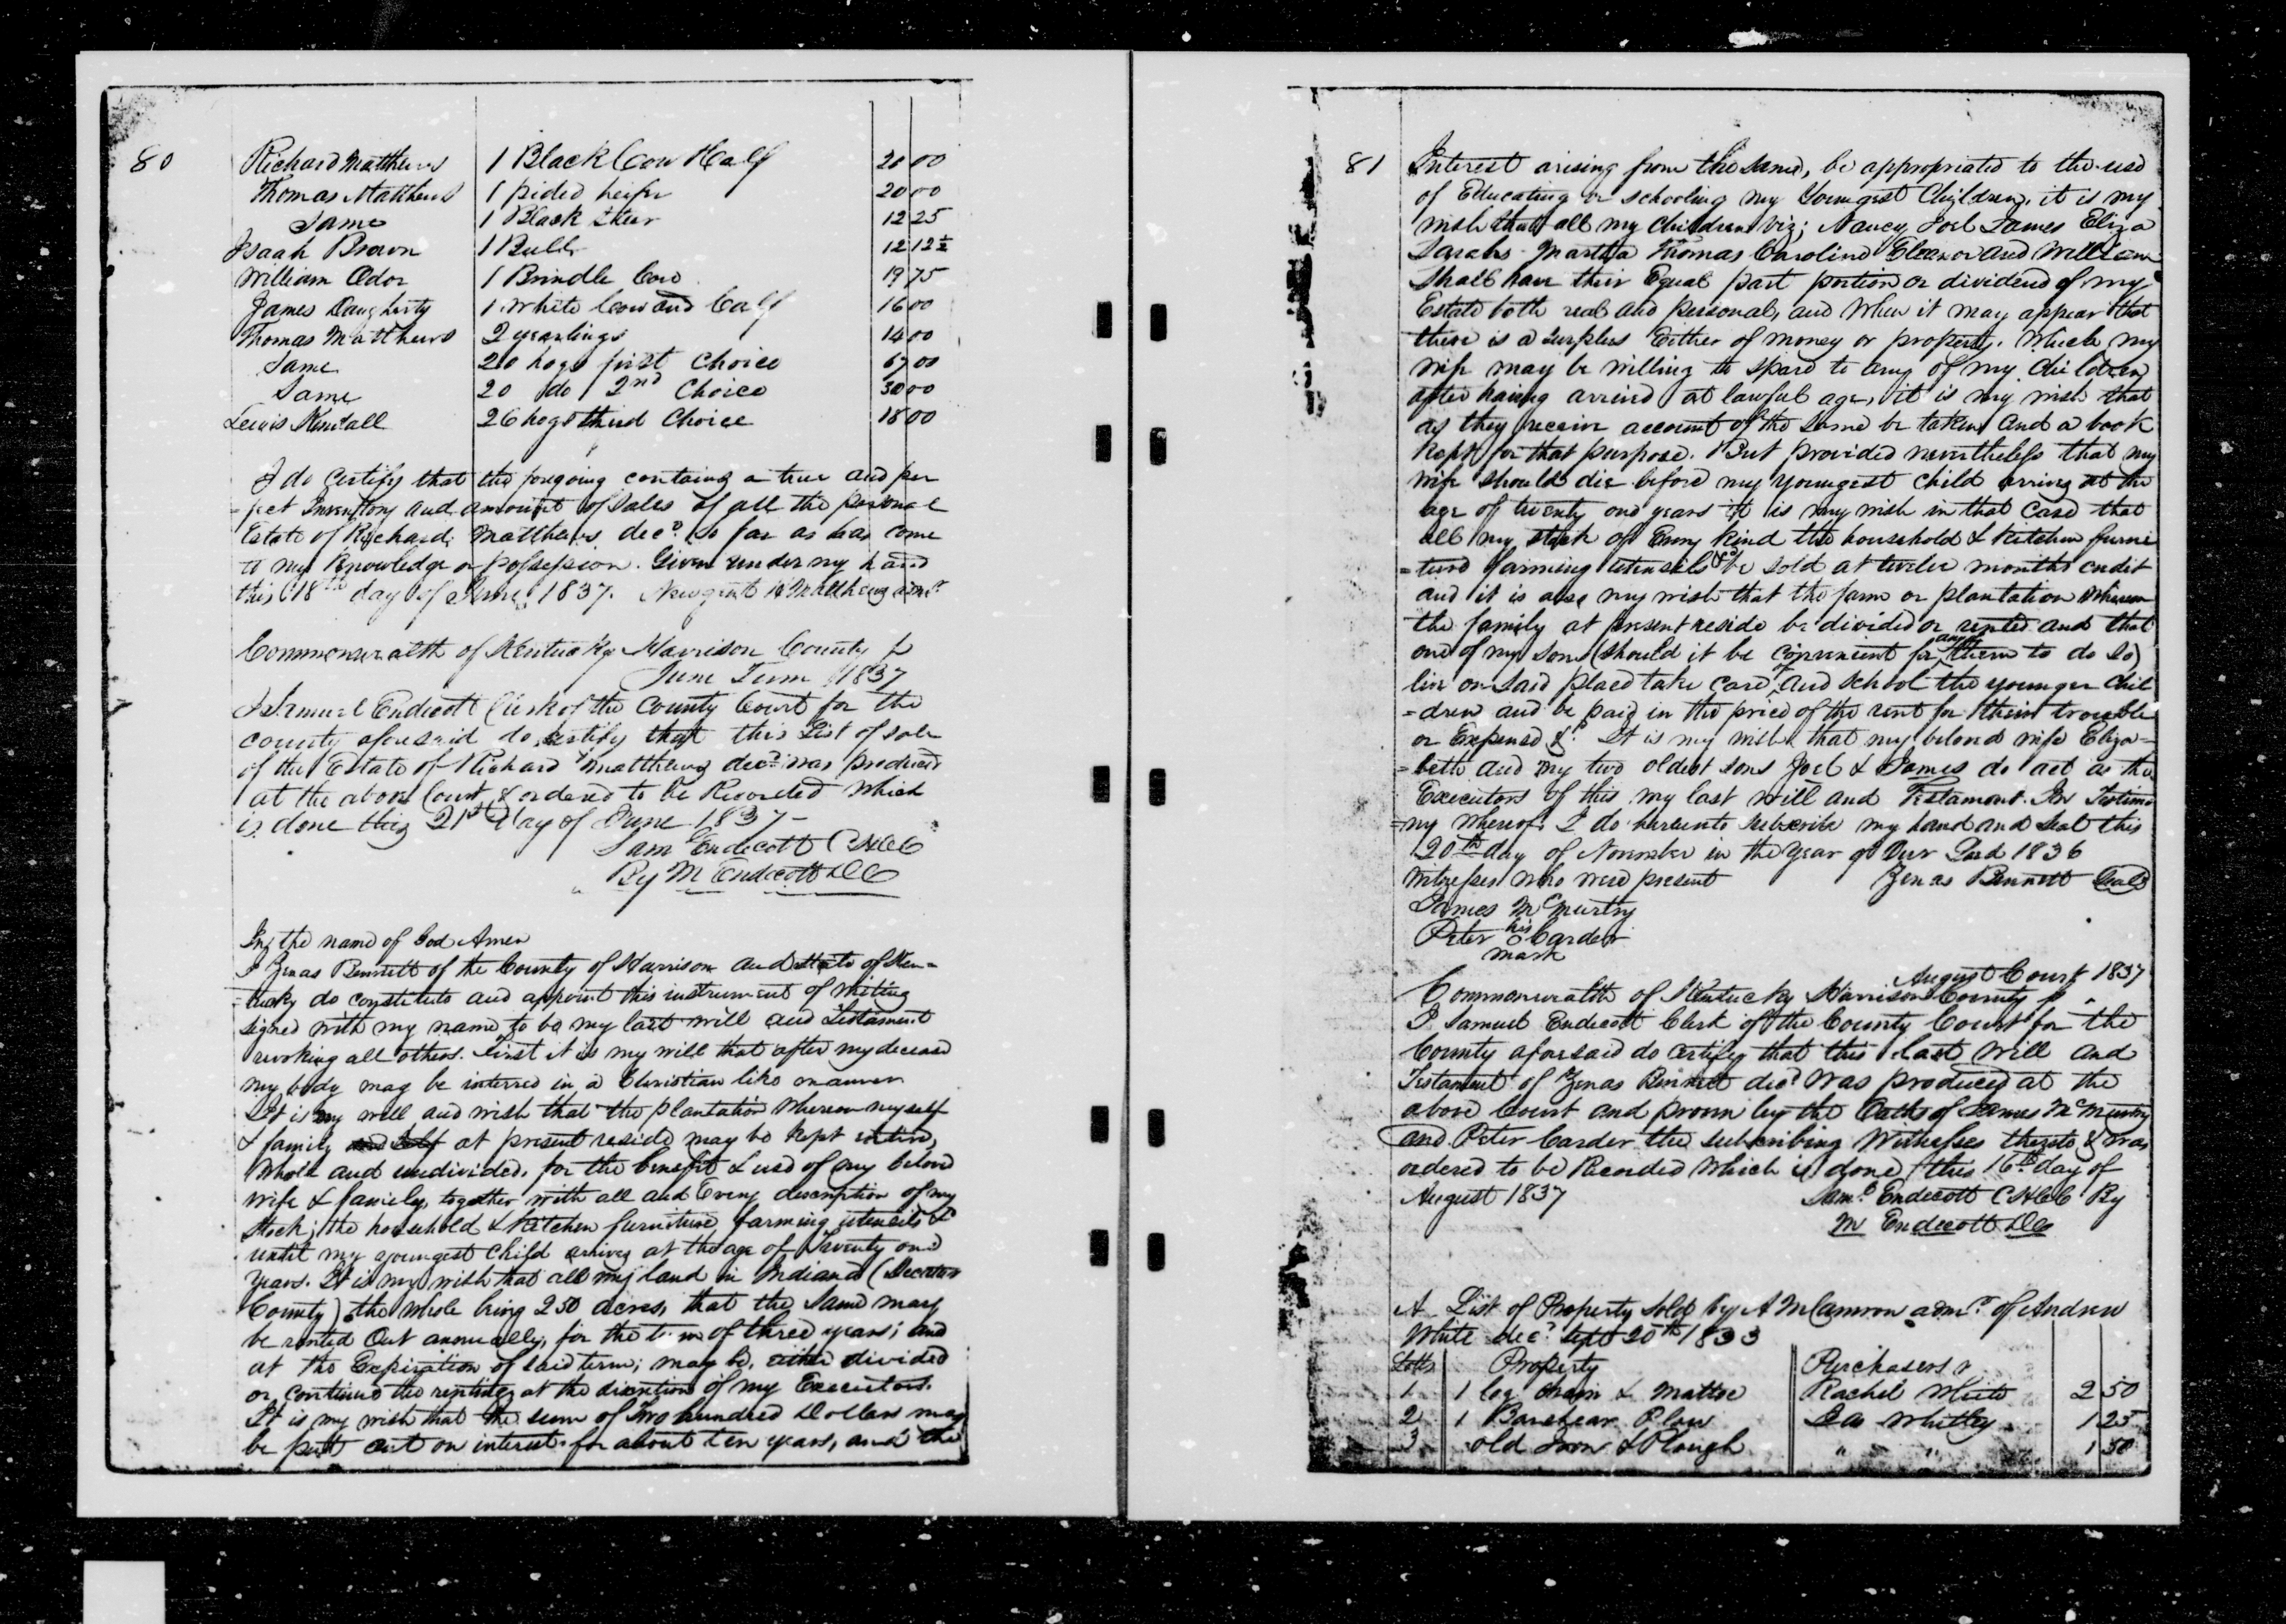 80
Richard Matthews 1 Black Cow Half 20 00
Thomas Matthews 1 pided heifer 20 00
Same 1 Black Steer 12 25
Isaah Brown 1 Bull 12 12½
William Odor 1 Brindle Cow 19 75
James Daugherty 1 White Cow and Calf 16 00
Thomas Matthews 2 yearlings 14 00
Same 20 hogs first Choice 67 00
Same 20 do 2nd Choice 30 00
Lewis Kendall 26 hogs third Choice 18 00
I do certify that the foregoing contains a true and per
-fect Inventory and amount of Sales of all the personal
Estate of Richard Matthews decd. So far as has come
to my Knowledge or possession. Given under my hand
this 18th day of June 1837. Matthews admr
Commonwealth of Kentucky Harrison County
June Term 1837
I Samuel Endicott Clerk of the County Court for the
county aforesaid do certify that this List of sale
of the Estate of Richard Matthews decd was produced
at the above Court & ordered to be Recorded which
is done this 21st day of June 1837-
Sam Endicott CHCC
By M Endicott DC
In the name of God Amen
I Zenas Bennett of the County of Harrison and state of Ken-
-tucky do constitute and appoint this instrument of writing
signed with my name to be my last will and Testament
revoking all others. First it is my will that after my decease
my body may be interred in a Christian like manner
It is my will and wish that the plantation whereon myself
& family at present reside may be kept entire,
whole and undivided, for the benefit & use of my belovd
wife & family, together with all and Every description of my
stock; the household & Kitchen furniture, farming utensils &c
untill my youngest child arrives at the age of twenty one
years. It is my wish that all my land in Indiana (Decatur
County) the whole being 250 acres, that the same may
be rented Out annually, for the term of three years; and
at the Expiration of said term; may be, either divided
or, continue the renting at the discretion of my Executors.
It is my wish that the sum of Two hundred Dollars may
be putt out on interest for about ten years, and the
81
Interest arising from the same, be appropriated to the use
of Educating or schooling my Youngest Children, it is my
wish that all my Children viz; Nancy Joel James Eliza
Sarah Martha Thomas Caroline Eleanor and William
Shall have their Equal part portion or dividend of my
Estate both real and personal, and when it may appear that
there is a surplus Either of money or property. Which my
wife may be willing to spare to any of my Children
after having arrived at lawful age, it is my wish that
as they receive account of the same be taken and a book
kept for that purpose. But provided nevertheless that my
wife should die before my youngest child arrives at the
age of twenty one years it is my wish in that Case that
all my stock of Every kind the household & kitchen furni
=ture farming utensils &c be sold at twelve months credit
and it is also my wish that the farm or plantation whereon
the family at present reside be divided or rented and that
one of my sons (should it be convenient for any of them to do so)
live on said place take care of and school the younger Chil
=dren and be paid in the price of the rent for their trouble
or Expense &c. It is my wish that my beloved wife Eliza=
=beth and my two oldest sons Joel & James do act as the
Executors of this my last will and Testament. In Testimo
=ny whereof I do hereunto subscribe my hand and seal this
20th day of November in the year of Our Lord 1836
Witnesses who were present Zenas Bennett Seal
James McMurtry
Peter his Carder
mark
August Court 1837
Commonwealth of Kentucky Harrison County
I Samuel Endicott Clerk of the County Court for the
County aforesaid do certify that this last Will and
Testament of Zenas Bennett decd was produced at the
above Court and proven by the Oaths of James McMurtry
and Peter Carder the subscribing Witnesses thereto & was
ordered to be Recorded which is done this 16th day of
August 1837 Saml Endicott CHCC By
M Endicott DC
A List of Property Sold by A McCamron admr of Andrew
White decd Sept 20th 1833
Lotts Property Purchasers
1 1 log Chain & Mattoc Rachel White 2 50
2 1 Barshear Plow Whitley 1 25
3 old Iron & Plough " " 1 50